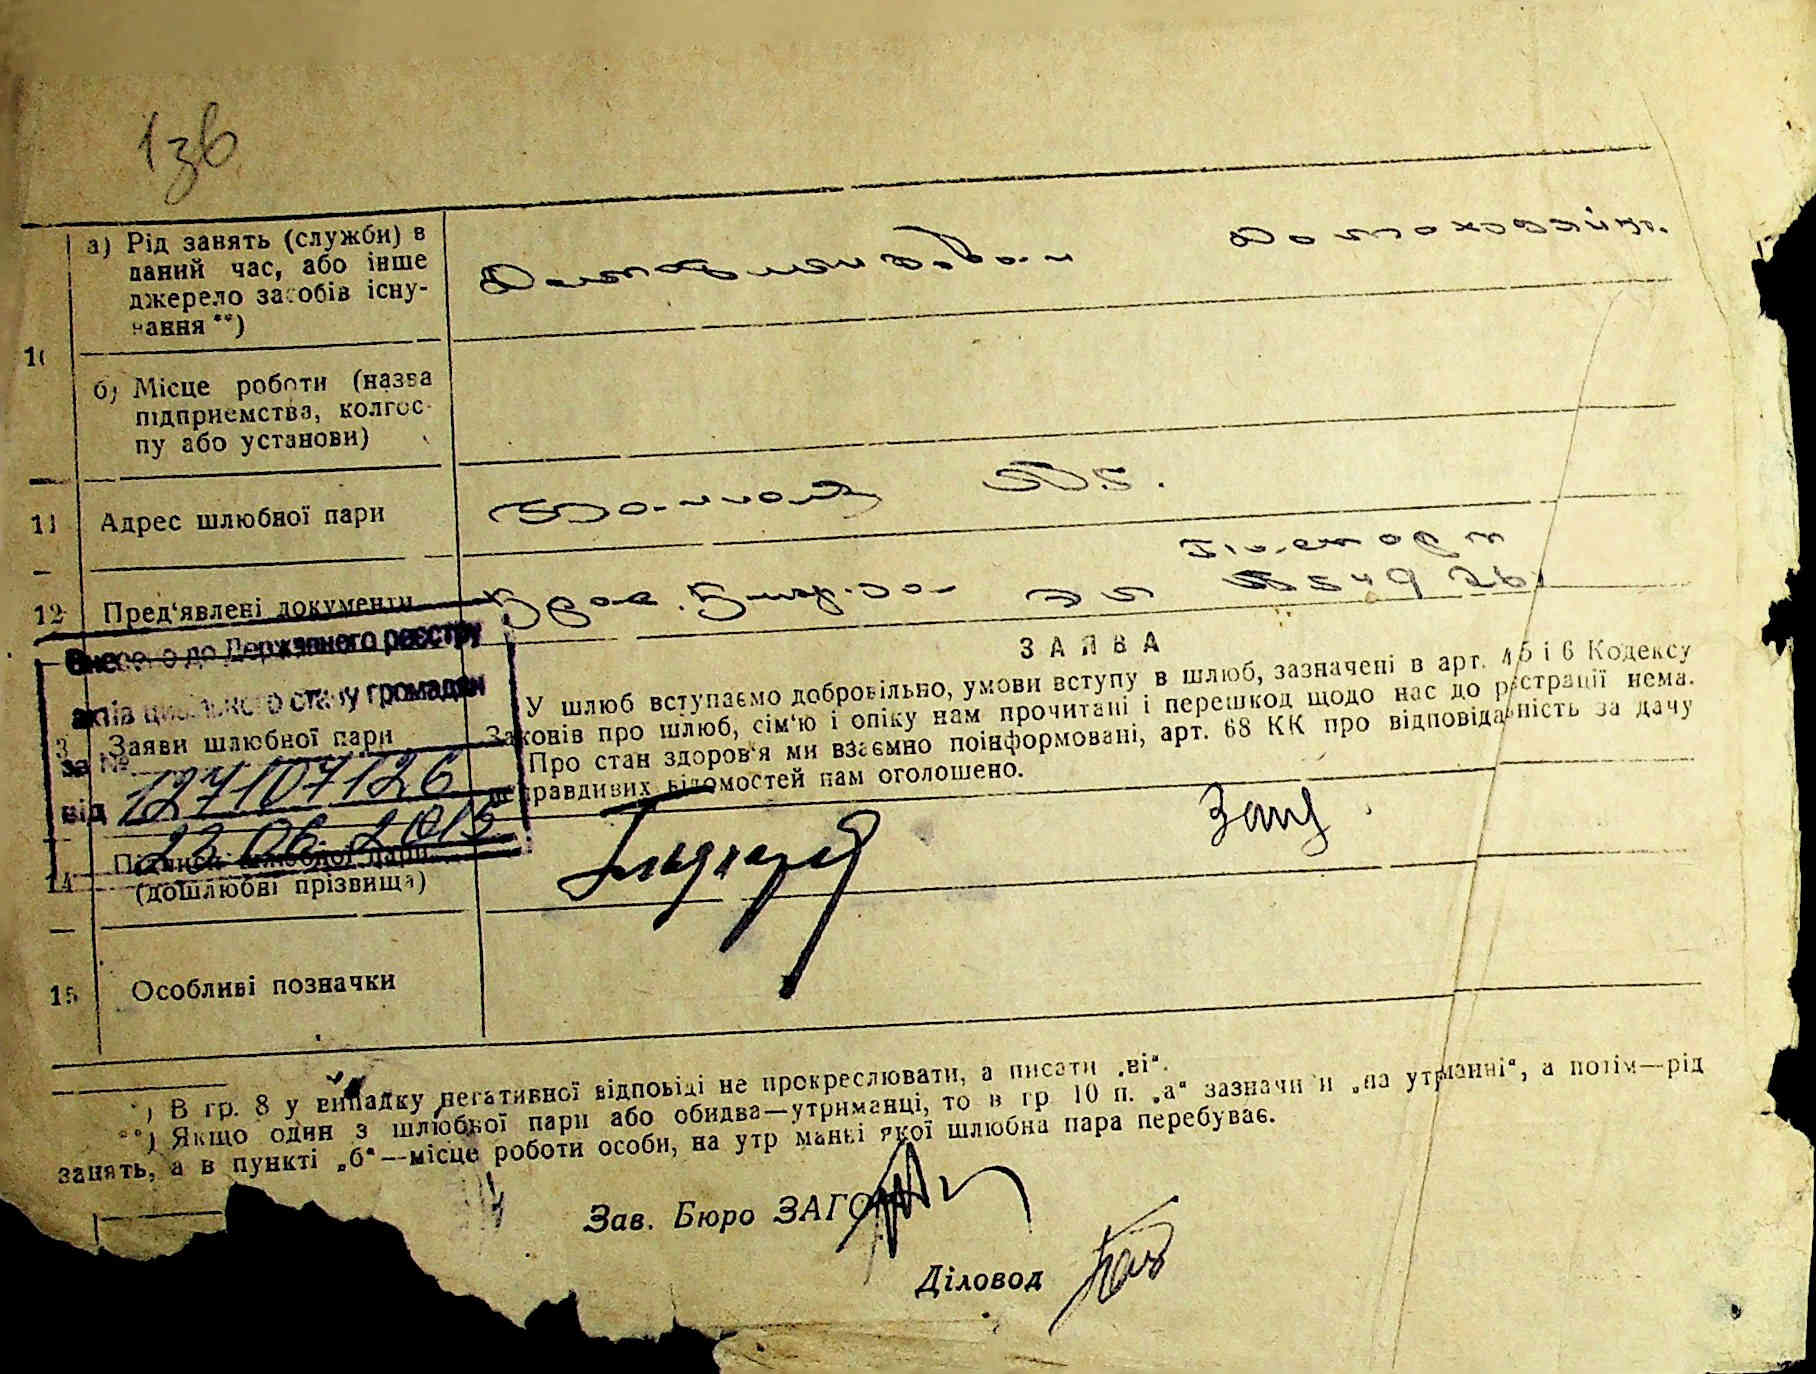 136
а) Рід занять (служби) в
даний час, або інше
джерело засобів існу-
вання **)
Демобилизован Домохозяйк.
10
б) Місце роботи (назва
підприємства, колгос-
пу або установи)
11 Адрес шлюбної пари
12 Пред'явлені документи
Паспорт
Внесено до Державного реєстру
актів цивільного стану громадян
за № 127107126
від 23 06 2015
ЗАЯВА
У шлюб вступаємо добровільно, умови вступу в шлюб, зазначені в арт. 4, 5 і 6 Кодексу
Законів про шлюб, сім'ю і опіку нам прочитані і перешкод щодо нас до рєстрації нема.
Про стан здоров'я ми взаємно поінформовані, арт. 68 КК про відповідальність за дачу
неправдивих відомостей нам оголошено.
Заяви шлюбної пари
14 Підписи шлюбної пари
(дошлюбні прізвища)
15 Особливі позначки
*) В гр. 8 у випадку негативної відповіді не прокреслювати, а писати „ні“.
**) Якщо один з шлюбної пари або обидва—утриманці, то в гр. 10 п. „а“ зазначити „на утриманні“, а потім—рід
занять, а в пункті „б“—місце роботи особи, на утриманні якої шлюбна пара перебуває.
Зав. Бюро ЗАГС
Діловод